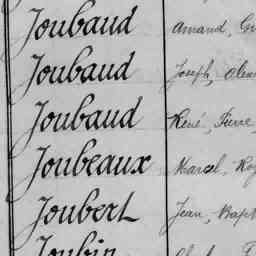 Joubaud Amand, Gu
Joubaud Joseph,
Joubaud René, Pierre,
Joubeaux Marcel, Ro
Joubert Jean, Bapt
Joubin